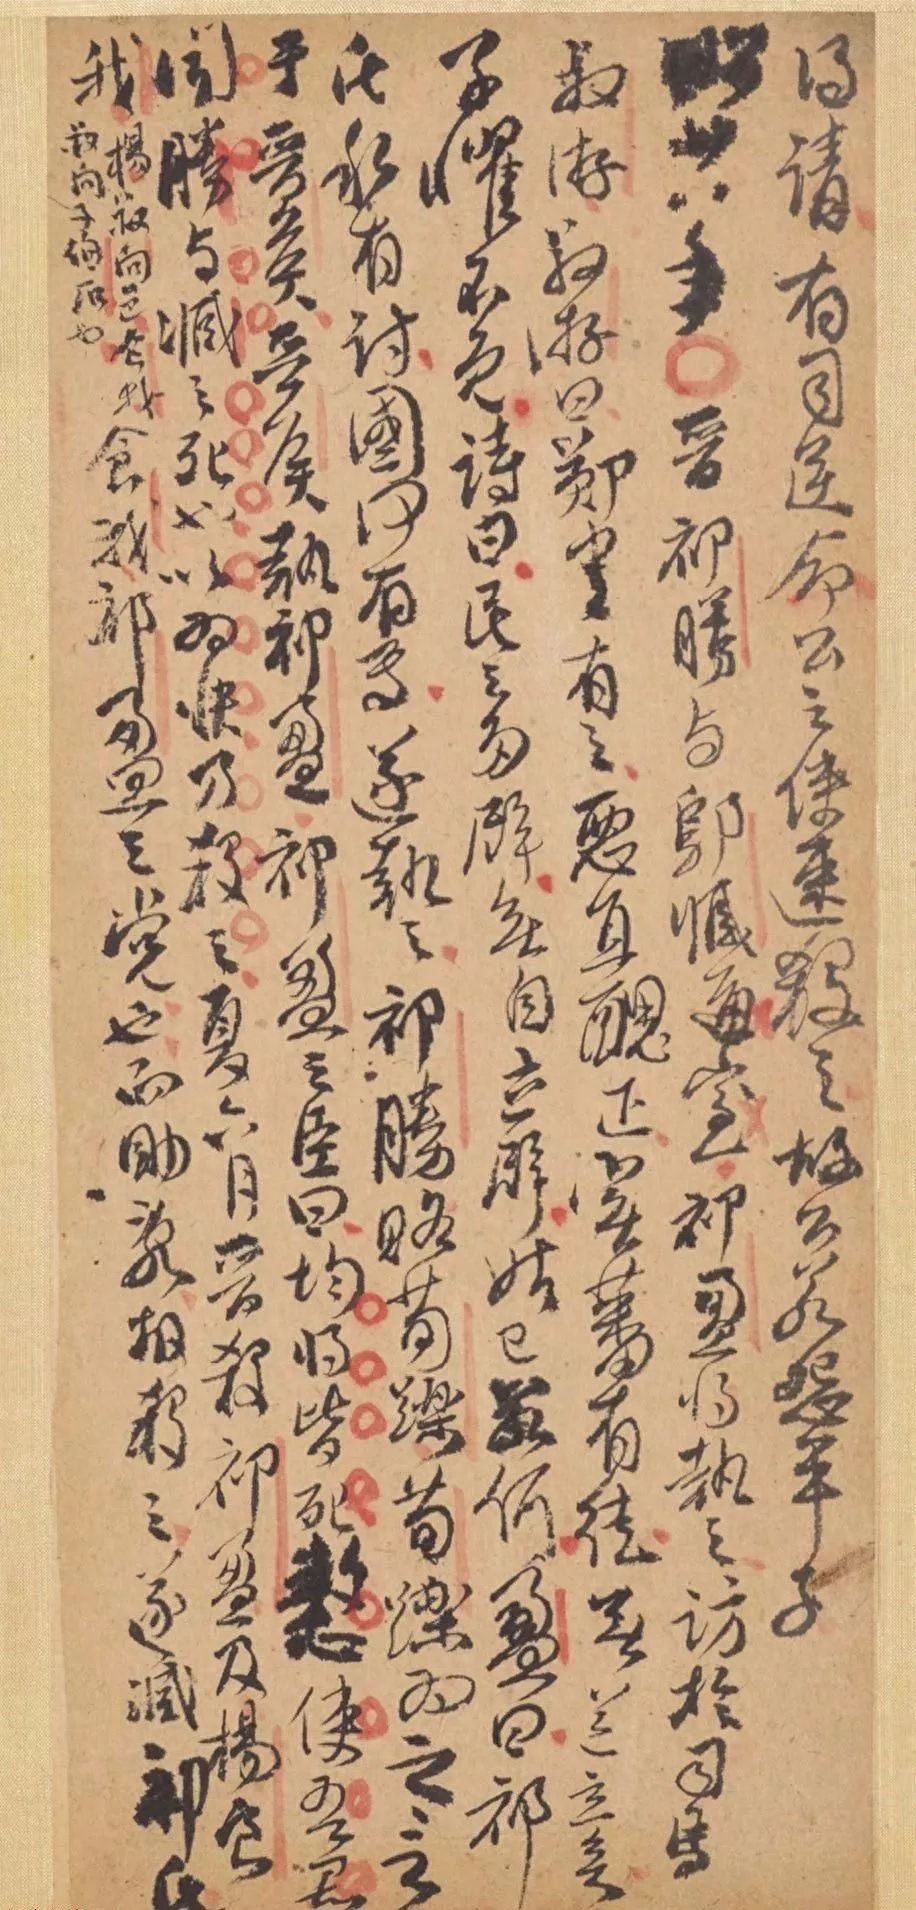 得請有司逆命公之使速殺之故公若怨平子
昭廿八年○晉祁勝与鄔臧通室祁盈将執之訪於司馬
叔游叔游曰鄭書有之惡直醜正實蕃有徒無道立矣
子懼不免詩曰民之多辟無自立辟姑已若何盈曰祁
氏私有討國何有焉遂執之祁勝賂荀躒荀躒为之言
于晉矦晉矦執祁盈祁盈之臣曰均将皆死憖使吾君
聞勝与臧之死也以为快乃殺之夏六月晉殺祁盈及楊食
我
楊叔向邑食我
叔向子伯石也
食我祁盈之党也而助乱故殺之遂滅祁氏